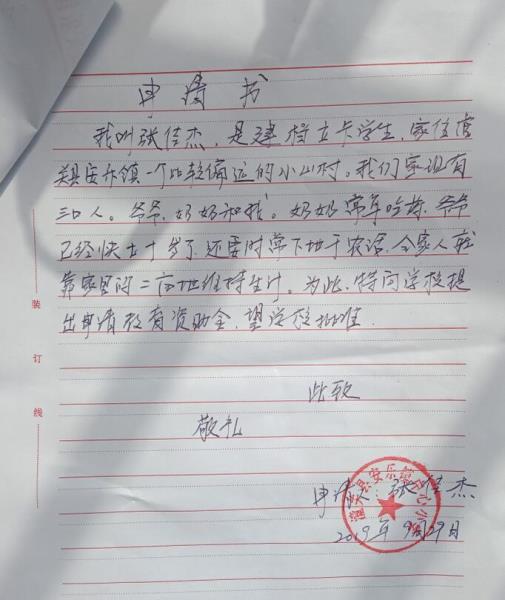 申请书
我叫张佳杰，是建档立卡学生，家住潼
关县安乐镇一个比较偏远的小山村。我们家现有
三口人。爷爷，奶奶和我。奶奶常年吃药，爷爷
已经快七十岁了，还要时常下地干农活，全家人就
靠家里的二亩地维持生计。为此，特向学校提
出申请教育资助金，望学校批准.
此致
敬礼
申请人：张佳杰
2019年9月29日
潼关县安乐镇中心小学
装
订
线